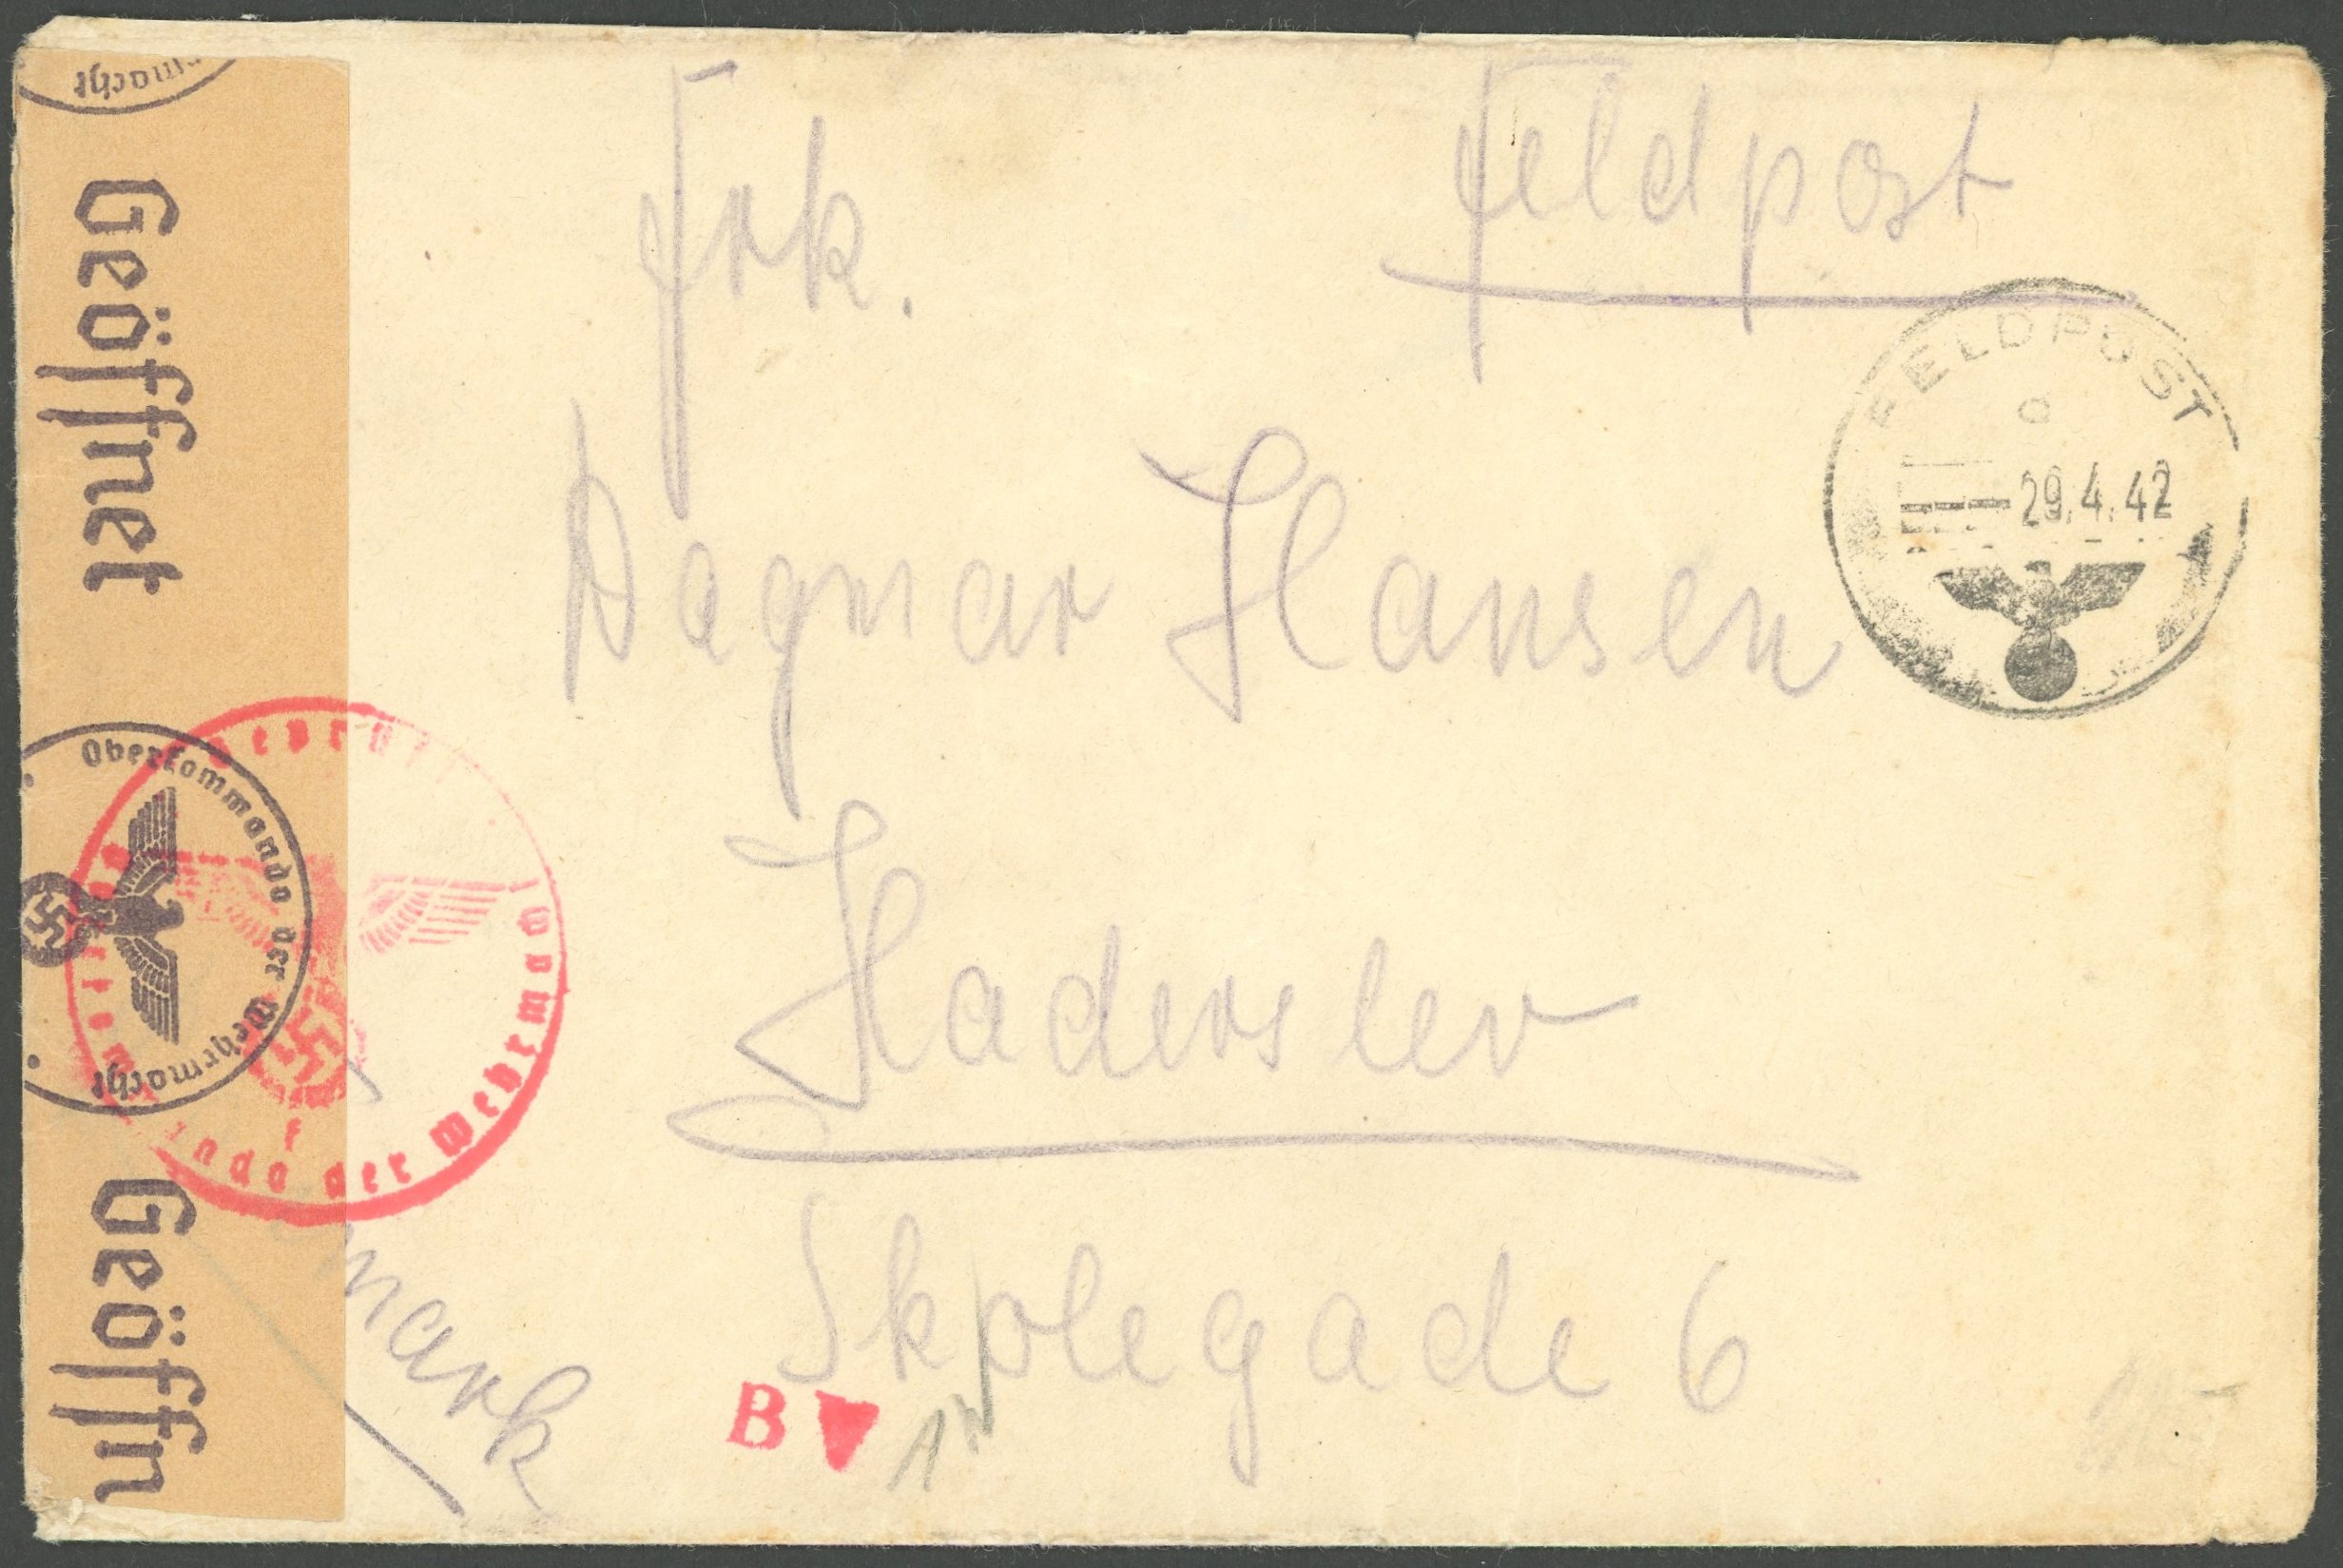 Feldpost
Frk.
Dagmar Hansen
Haderslev
Skolegade 6
mark
FELDPOST
a
29.4.42
Geöffnet
Oberkommando der Wehrmacht
Geöffn
macht
Geprüft
Oberkommando der Wehrmacht
f
B